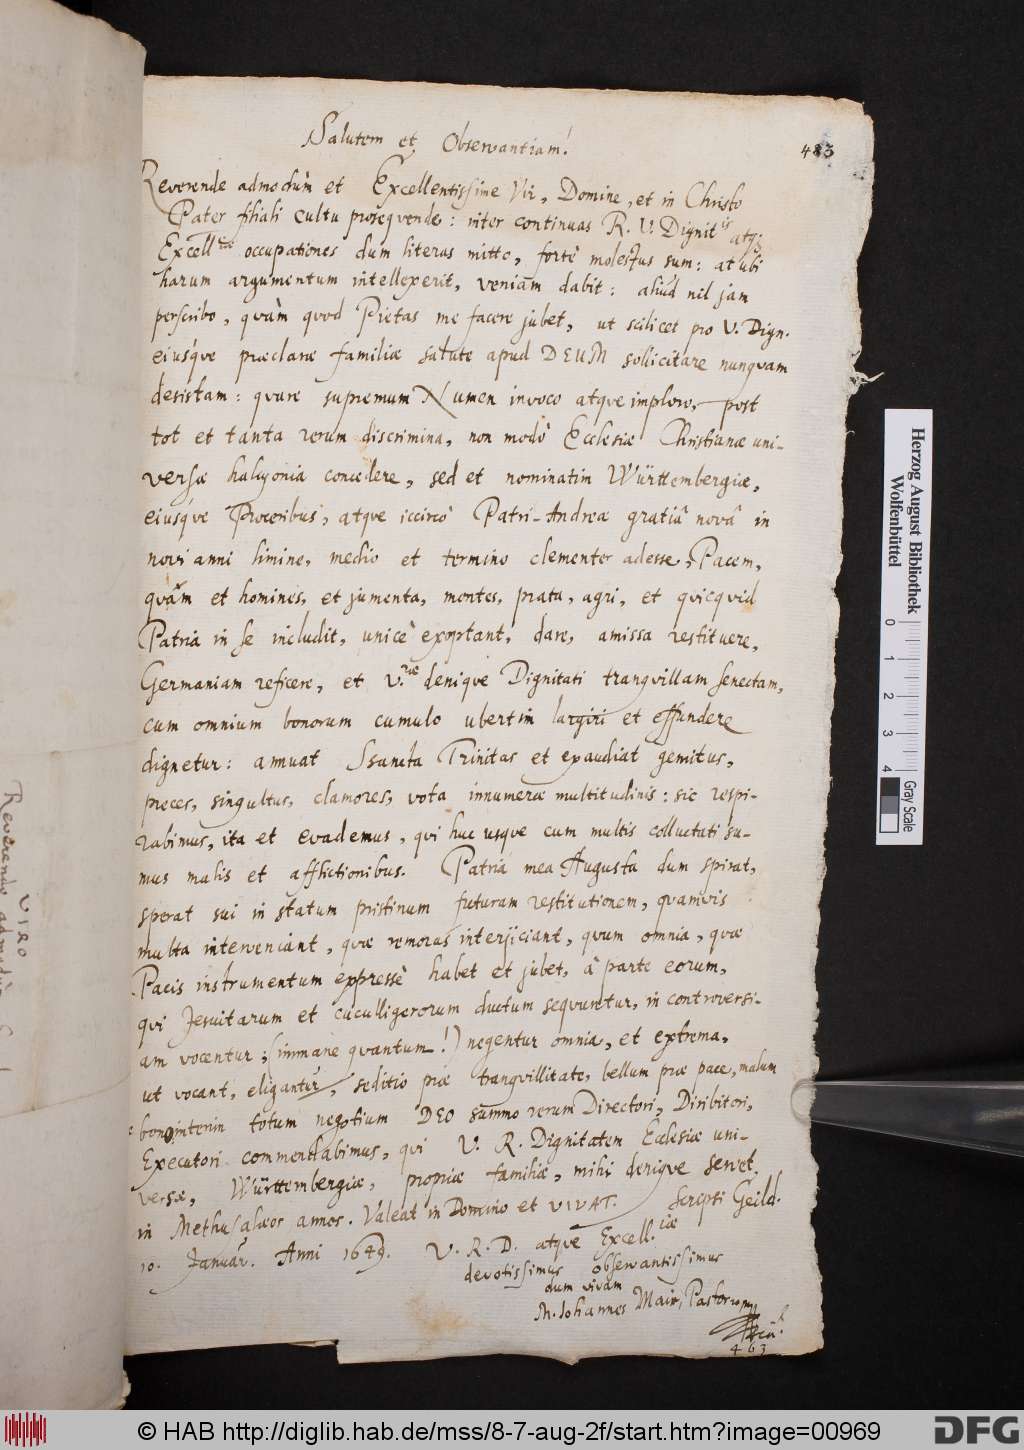 Salutem et Observantiam!
483
Reverende admodùm et Excellentissime Vir, Domine, et in Christo
Pater filiali cultu proseqvende: inter continuas R. V. Dignit.is atq;
Excell.tiæ occupationes dum literas mitto, fortè molestus sum: at ubi
harum argumentum intellexerit, veniam dabit: aliud nil jam
perscribo, qvàm qvod Pietas me facere jubet, ut scilicet pro V. Dign.
eiusqve præclaræ familiæ salute apud DEUM sollicitare nunqvam
desistam: qvare supremum Numen invoco atqve imploro, post
tot et tanta rerum discrimina, non modò Ecclesiæ Christianæ uni-
versæ halcyonia concedere, sed et nominatim Württembergiæ,
eiusqve Proceribus, atqve iccircò Patri-Andreæ gratiâ novâ in
novi anni limine, medio et termino clementer adesse, Pacem,
qvam et homines, et jumenta, montes, prata, agri, et qvicqvid
Patria in se includit, unicè exoptant, dare, amissa restituere,
Germaniam reficere, et V.ræ deniqve Dignitati tranqvillam senectam,
cum omnium bonorum cumulo ubertim largiri et effundere
dignetur: annuat Ssancta Trinitas et exaudiat gemitus,
preces, singultus, clamores, vota innumeræ multitudinis: sic respi-
rabimus, ita et evademus, qvi huc usqve cum multis colluctati su-
mus malis et afflictionibus. Patria mea Augusta dum spirat,
sperat sui in statum pristinum futuram restitutionem, qvamvis
multa interveniant, qvæ remoras interjiciant, qvum omnia, qvæ
Pacis instrumentum expressè habet et jubet, à parte eorum,
qvi Jesuitarum et cuculligerorum ductum seqvuntur, in controversi-
am vocentur; (immane qvantum!) negentur omnia, et extrema,
ut vocant, eligantur, seditio præ tranqvillitate, bellum præ pace, malum
bono; interim totum negotium DEO summo rerum Directori, Diribitori,
Executori commendabimus, qvi V. R. Dignitatem Ecclesiæ uni-
versæ, Württembergiæ, propriæ familiæ, mihi deniqve servet
in Methusalæos annos. Valeat in Domino et VIVAT. Scripsi Geisl.
10. Januar. Anni 1649. V. R. D. atqve Excell.tiæ
devotissimus observantissimus
dum vivam
M. Iohannes Mair, Pastor
463
VIRO
Reverendo admodùm
Herzog August Bibliothek
Wolfenbüttel
0 1 2 3 4
Gray Scale
© HAB http://diglib.hab.de/mss/8-7-aug-2f/start.htm?image=00969
DFG